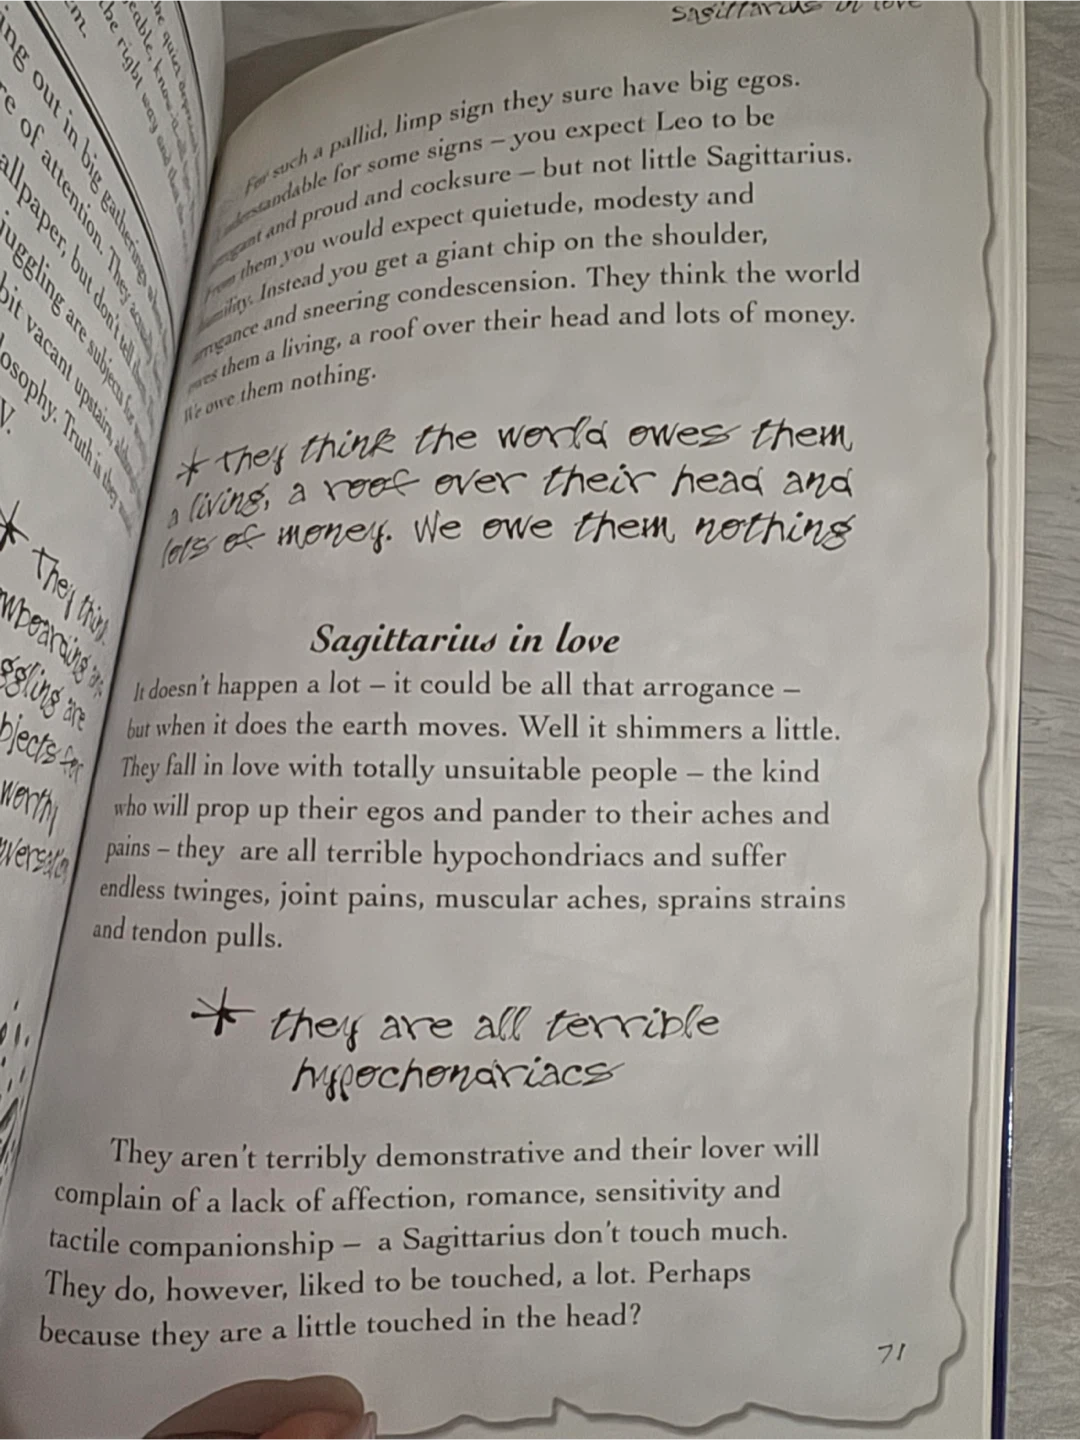 ing out in big gatherings
re of attention. They
allpaper, but don't tell them.
juggling are subjects for
bit vacant upstairs,
losophy. Truth is they
V.
* They think
owboarding are
ggling are
bjects for
worthy
Sagittarius in love
For such a pallid, limp sign they sure have big egos.
understandable for some signs – you expect Leo to be
arrogant and proud and cocksure – but not little Sagittarius.
From them you would expect quietude, modesty and
humility. Instead you get a giant chip on the shoulder,
arrogance and sneering condescension. They think the world
owes them a living, a roof over their head and lots of money.
We owe them nothing.
* They think the world owes them
a living, a roof over their head and
lots of money. We owe them nothing
Sagittarius in love
It doesn't happen a lot – it could be all that arrogance –
but when it does the earth moves. Well it shimmers a little.
They fall in love with totally unsuitable people – the kind
who will prop up their egos and pander to their aches and
pains – they are all terrible hypochondriacs and suffer
endless twinges, joint pains, muscular aches, sprains strains
and tendon pulls.
* they are all terrible
hypochondriacs
They aren't terribly demonstrative and their lover will
complain of a lack of affection, romance, sensitivity and
tactile companionship – a Sagittarius don't touch much.
They do, however, liked to be touched, a lot. Perhaps
because they are a little touched in the head?
71